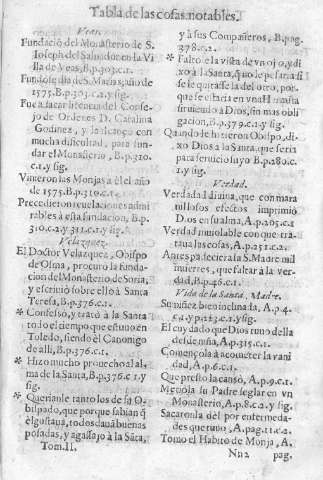 Tabla de las cosas notables.
Veas.
Fundaciõ del Monasterio de S.
Ioseph del Saluador en la Vi
lla de Veas, B.p.303.c.1.
Fundose dia de S. Matias, año de
1575. B.p.303.c.1. y sig.
Fue a sacar licencia del Conse-
jo de Ordenes D. Catalina
Godinez, y la alcançò con
mucha dificultad, para fun-
dar el Monasterio, B.p.310.
c.1. y sig.
Vinieron las Monjas a èl el año
de 1575. B.p.310.c.1.
Precedieron reuelaciones admi
rables à esta fundacion, B.p.
310.c.2. y 311.c.1. y sig.
Velazquez.
El Doctor Velazquez, Obispo
de Osma, procurò la funda-
cion del Monasterio de Soria,
y escriviò sobre ello à Santa
Teresa, B.p.376.c.1.
* Confessò, y tratò à la Santa
todo el tiempo que estuuo en
Toledo, siendo èl Canonigo
de alli, B.p.376.c.1.
* Hizo mucho prouecho al al-
ma de la Santa, B.p.376.c.1. y
sig.
* Querianle tanto los de su O-
bispado, que porque sabian q̃
èl gustaua, todos daua buenas
posadas, y agassajo à la Sãta,
Tom.II.
y à sus Compañeros, B.pag.
378.c.2.
* Faltole la vista de vn ojo, y di-
xo à la Santa, q̃ no le pesaria si
se le quitasse la del otro, por-
que se estaria en vna Hermita
siruiendo a Dios, sin mas obli-
gacion, B.p.379.c.1. y sig.
Quando le hizieron Obispo, di-
xo Dios a la Santa, que seria
para seruicio suyo B.p.280.c.
1. y sig.
Verdad.
Verdad Diuina, que con mara
uillosos efectos imprimiò
Dios en su alma, A.p.205.c.1.
Verdad inuiolable con que tra-
taua las cosas, A.p.251.c.2.
Antes padeciera la S. Madre mil
muertes, que faltàr à la ver-
dad, B.p.46.c.1.
Vida de la Santa Madre.
Su niñez bien inclinada, A.p.4.
c.2. y p.243.c.1. y sig.
El cuydado que Dios tuuo della
desde niña, A.p.315.c.1.
Començola à acometer la vani
dad, A.p.6.c.1.
Que presto la cansò, A.p.9.c.1.
Metiola su Padre seglar en vn
Monasterio, A.p.8.c.2. y sig.
Sacaronla dèl por enfermeda-
des que tuuo, A.pag.11.c.2.
Tomò el Habito de Monja, A.
Nn2 pag.